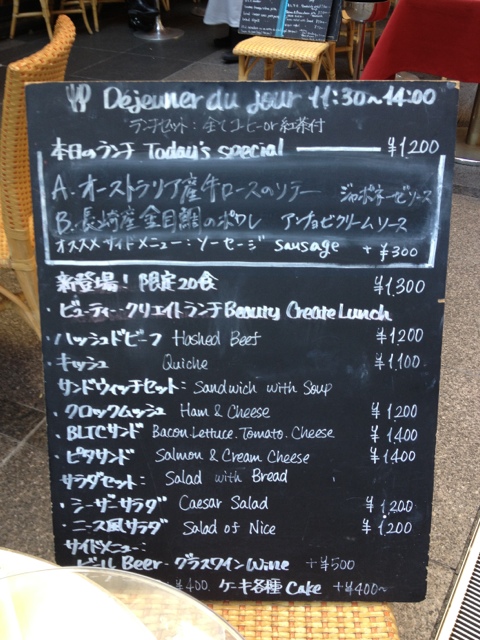 Déjeuner du jour 11:30~14:00
ランチセット：全てコーヒーor紅茶付
本日のランチ Today's special ¥1,200
A. オーストラリア産牛ロースのソテー ジャポネーゼソース
B. 長崎産金目鯛のポワレ アンチョビクリームソース
オススメサイドメニュー：ソーセージ sausage + ¥300
新登場！限定20食 ¥1,300
・ビューティークリエイトランチ Beauty Create Lunch
・ハッシュドビーフ Hashed Beef ¥1,200
・キッシュ Quiche ¥1,100
サンドウィッチセット：Sandwich with Soup
・クロックムッシュ Ham & Cheese ¥1,200
・BLTCサンド Bacon.Lettuce.Tomato.Cheese ¥1,400
・ピタサンド Salmon & Cream Cheese ¥1,400
サラダセット：Salad with Bread
・シーザーサラダ Caesar Salad ¥1,200
・ニース風サラダ Salad of Nice ¥1,200
サイドメニュー：
ビール Beer・グラスワイン Wine +¥500
¥400. ケーキ各種 Cake +¥400~